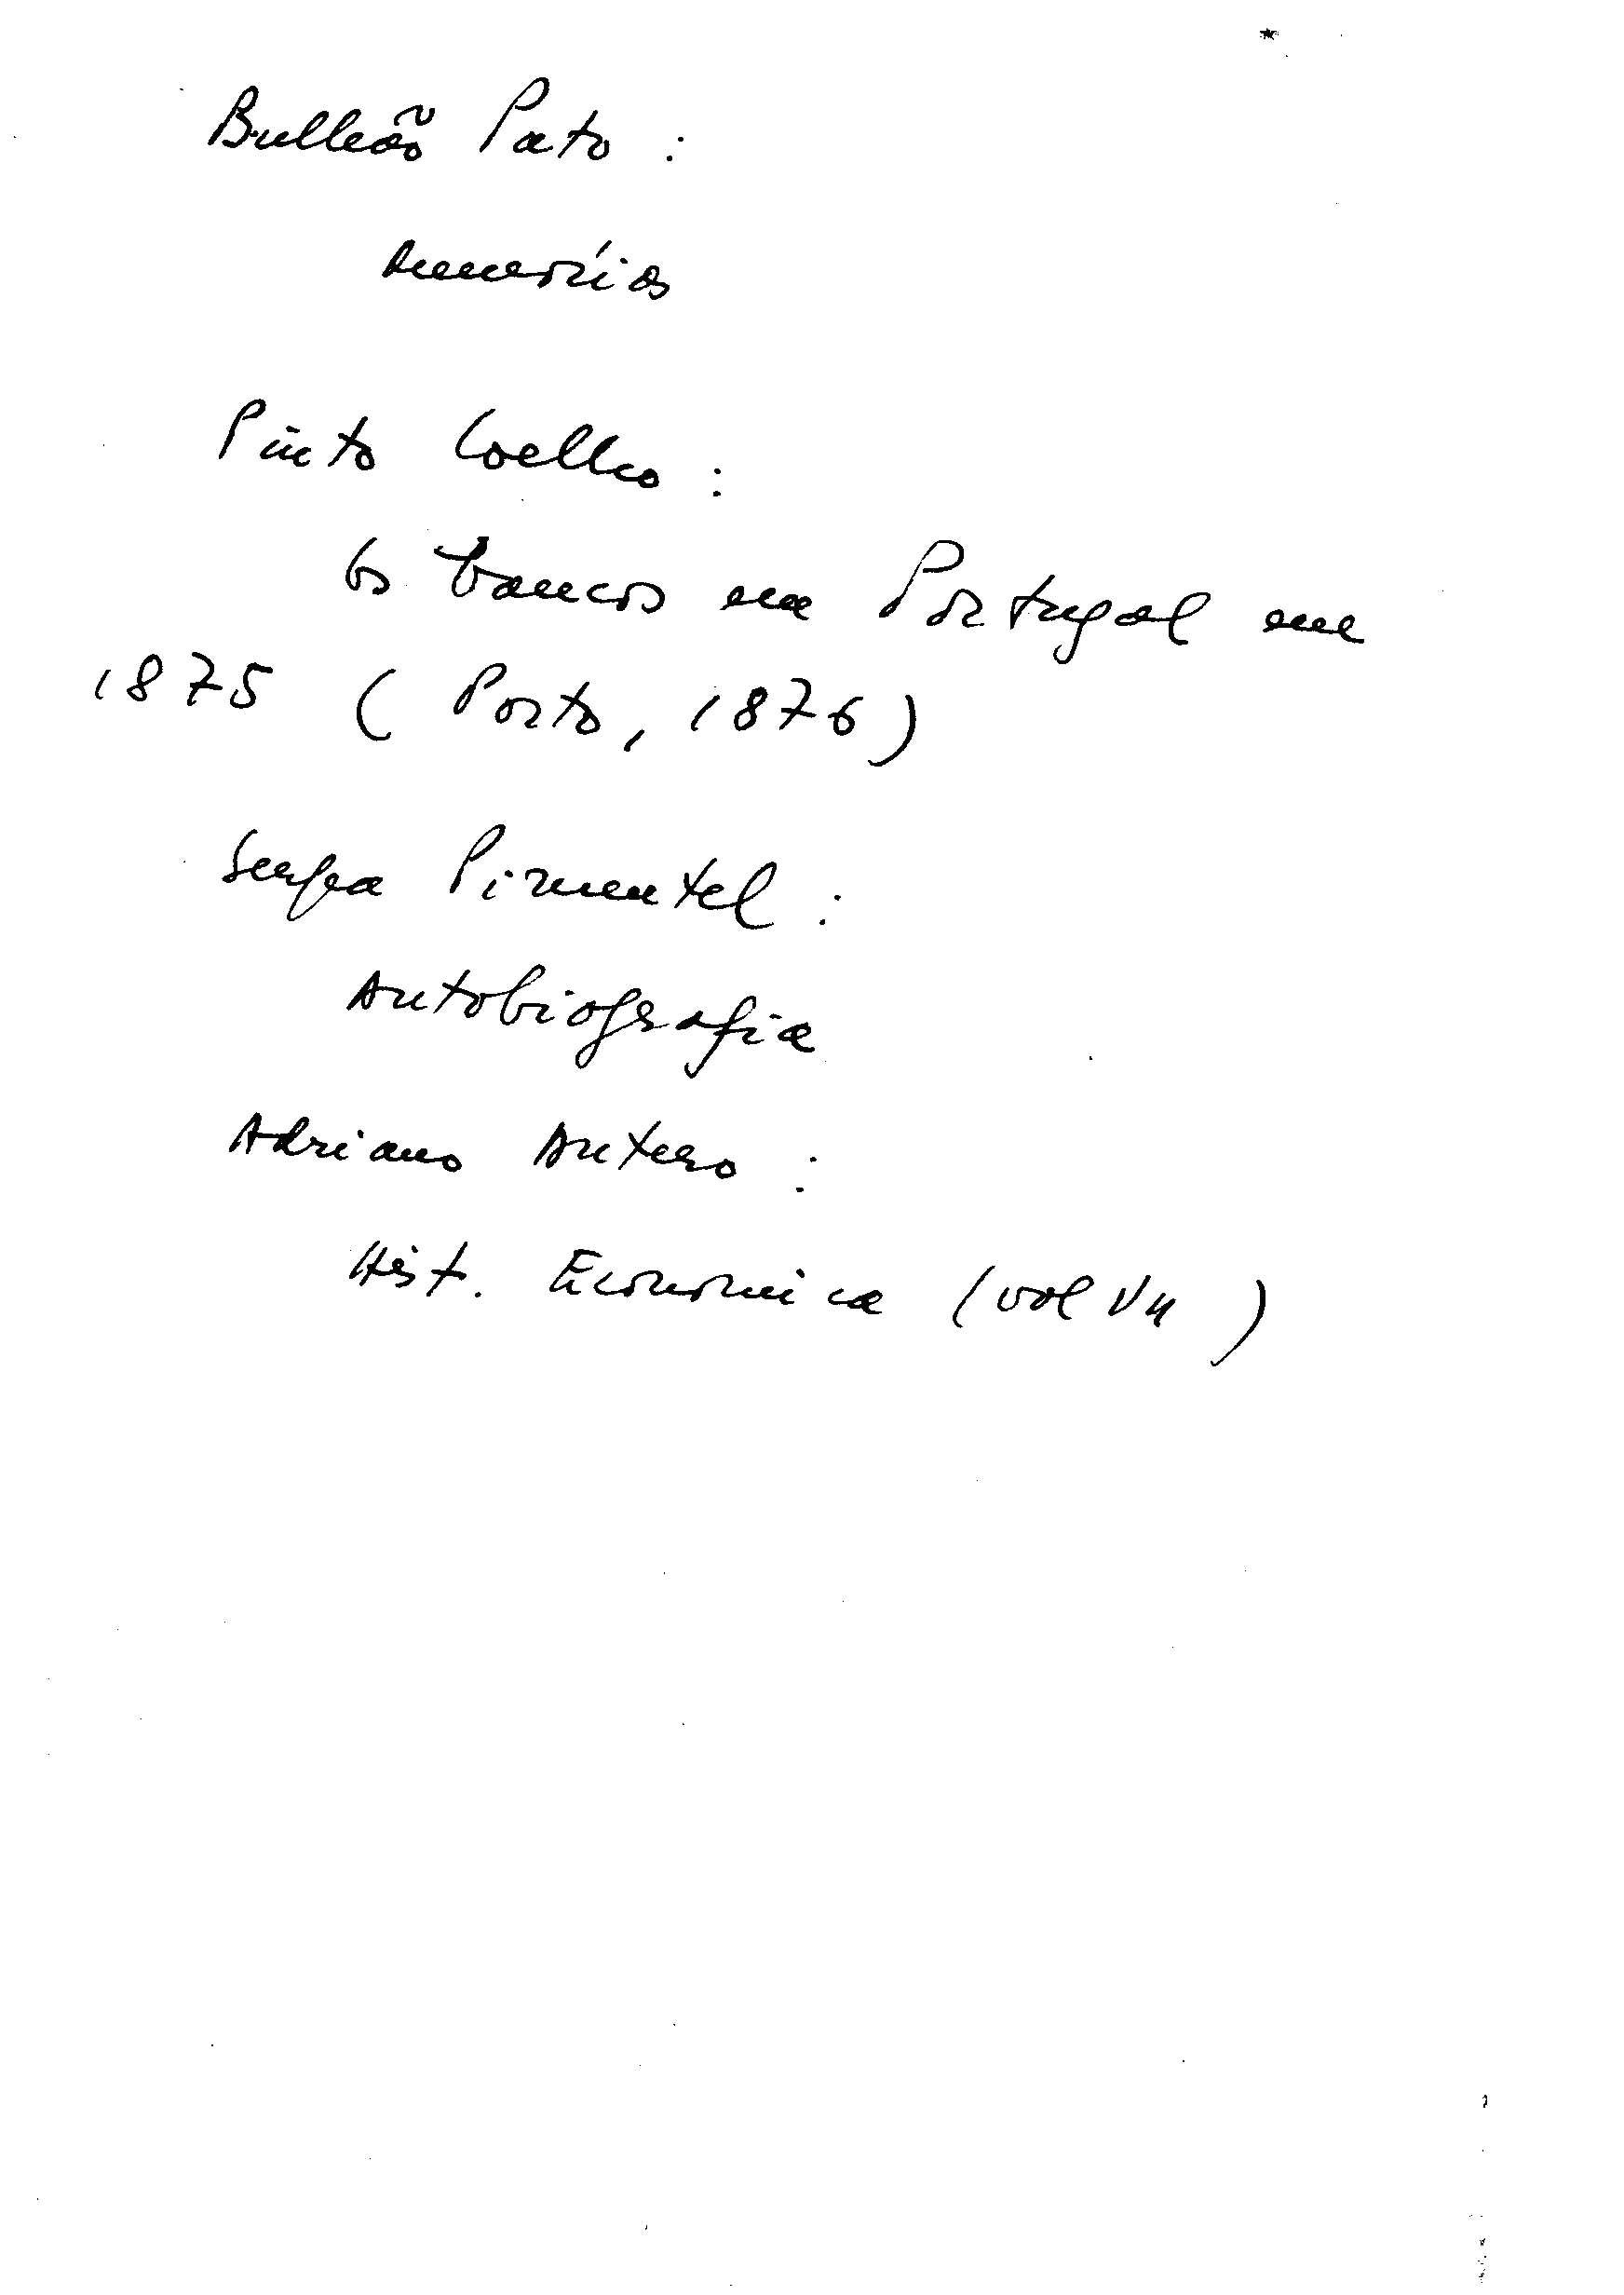 Bulhão Pato :
Memórias
Pinto Coelho :
Os bancos em Portugal em
1875 (Porto, 1876)
Serpa Pimentel :
Autobiografia
Adriano Antero :
Hist. Economica (vol VII)